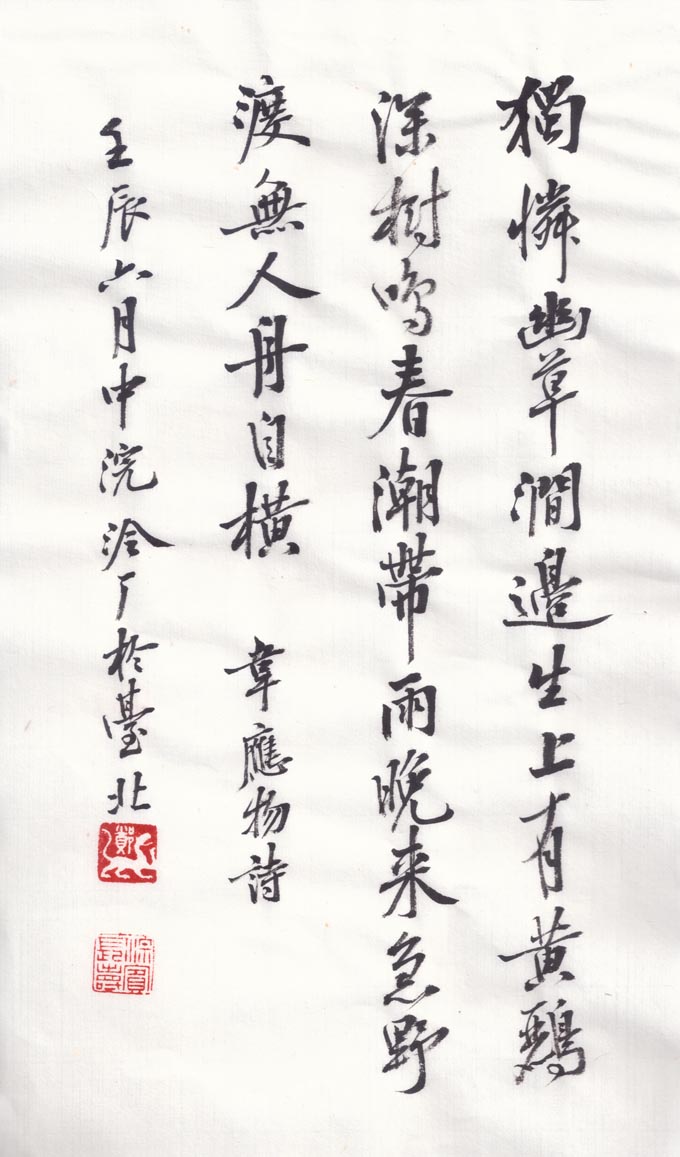 獨憐幽草澗邊生上有黃鸝
深樹鳴春潮帶雨晚来急野
渡無人舟自橫 韋應物詩
壬辰六月中浣泠厂於臺北